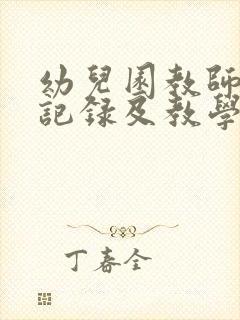 幼兒園教師
記錄及教學
丁春全